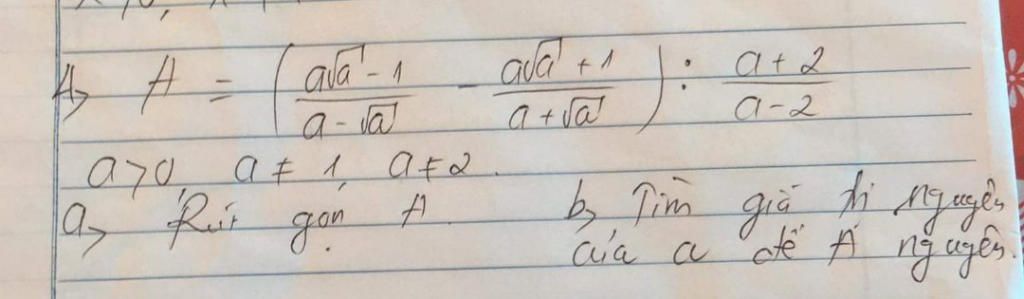 A, A = ( (a√a - 1)/(a - √a) - (a√a + 1)/(a + √a) ) : (a + 2)/(a - 2)
a > 0, a ≠ 1, a ≠ 2.
a, Rút gọn A. b, Tìm giá trị nguyên
của a để A nguyên.